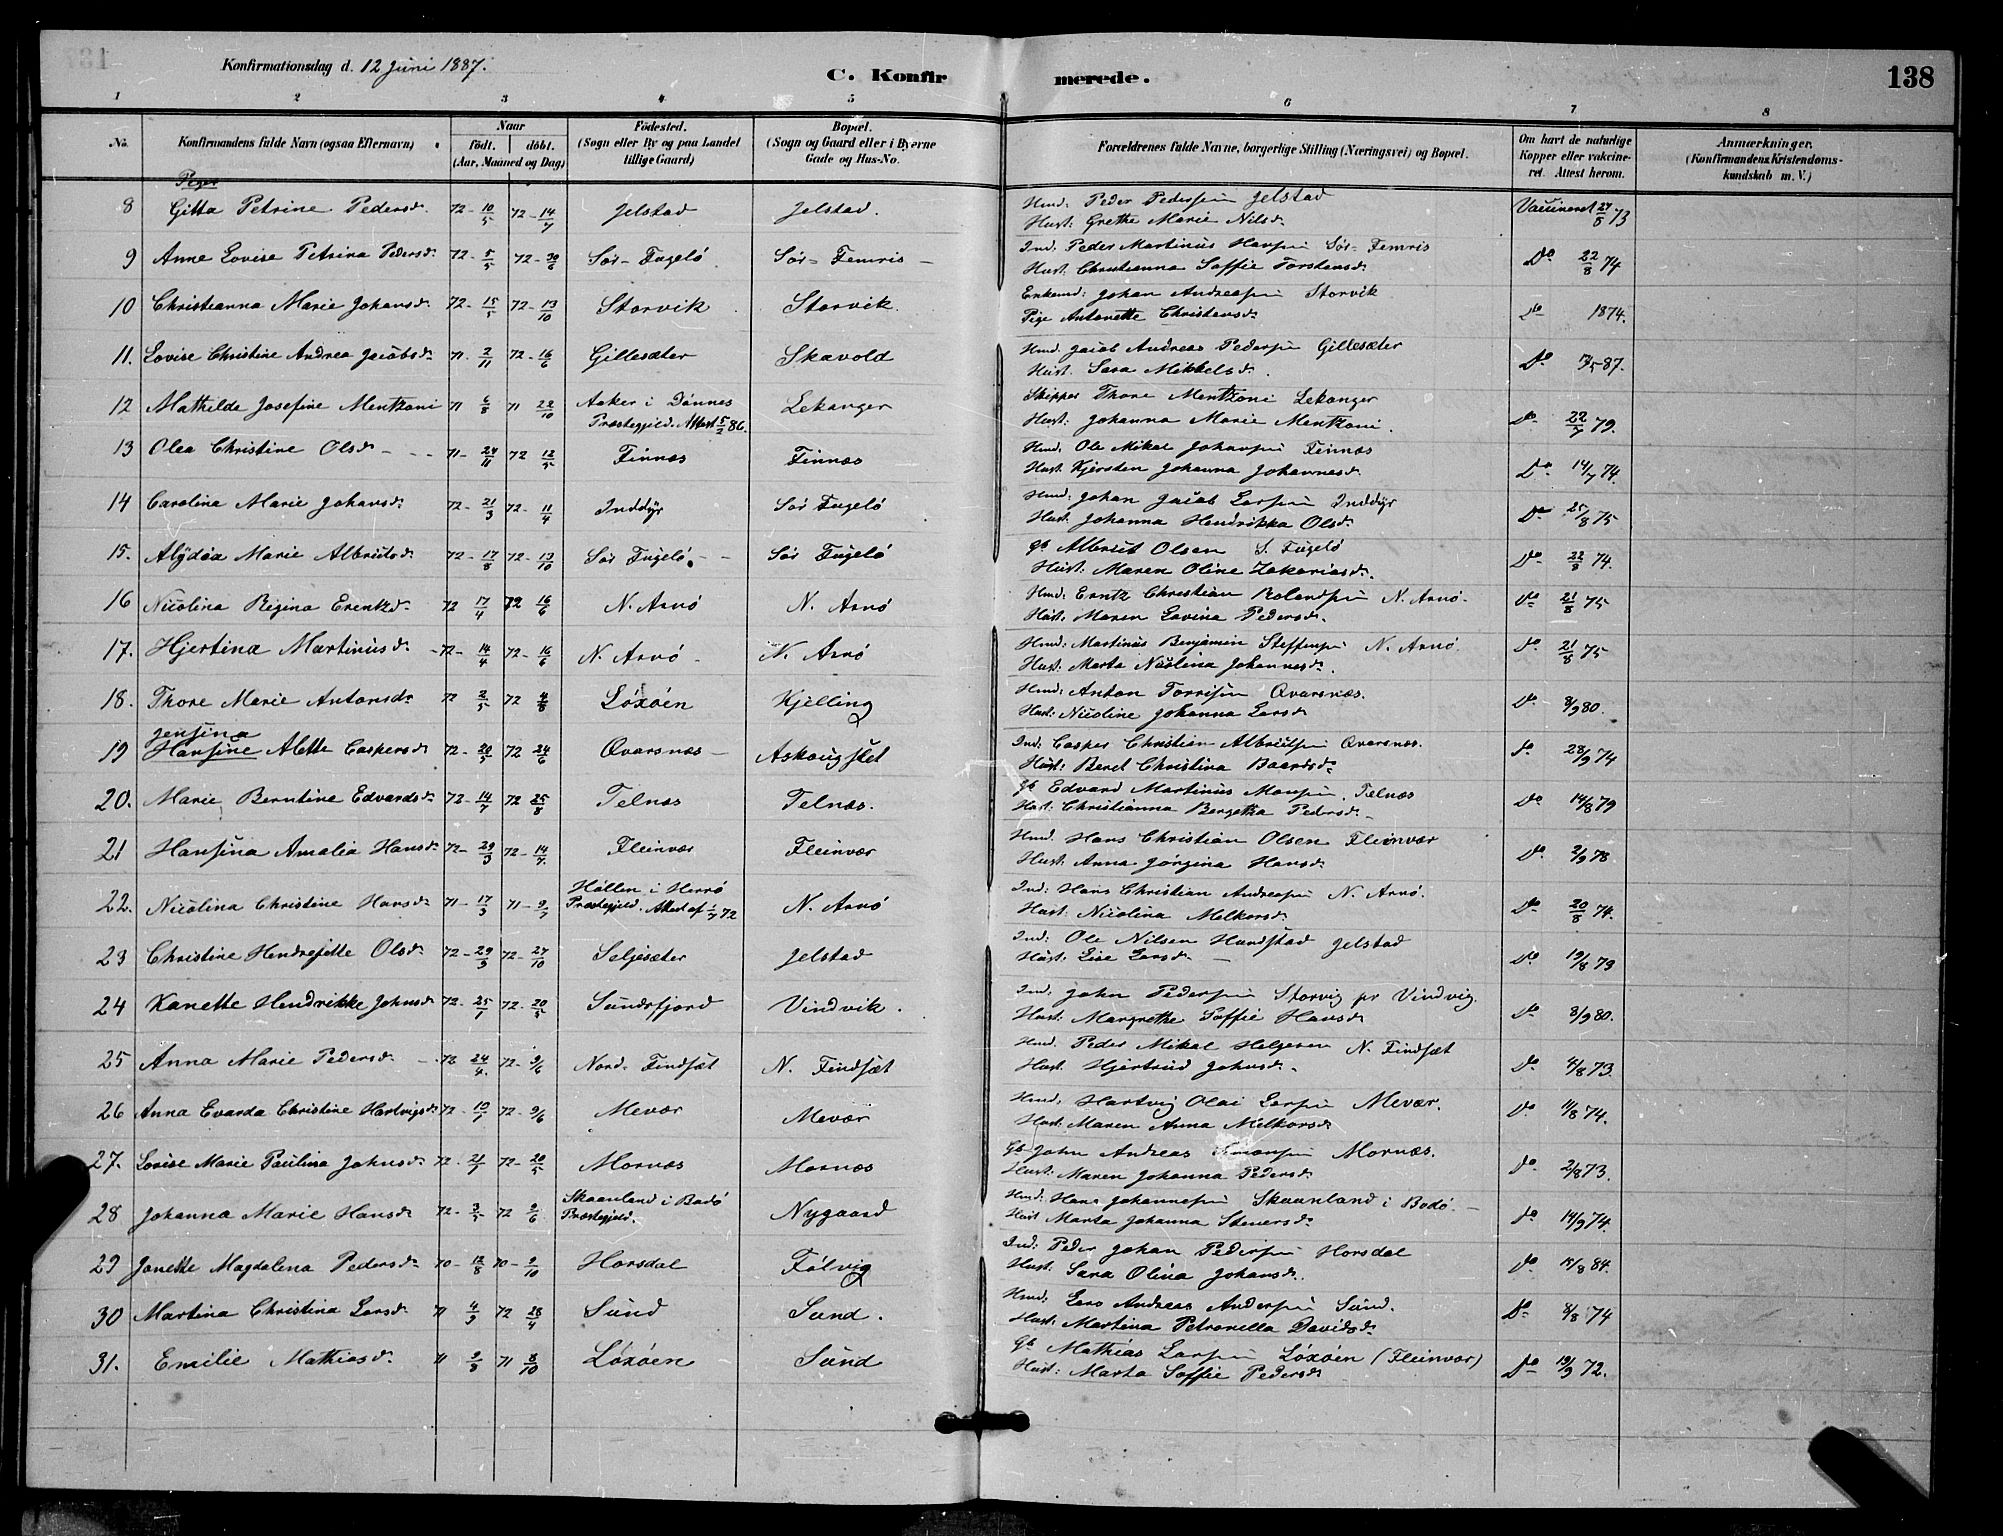 Konfirmationsdag d. 12 Juni 1887.
C. Konfir merede. 138
1 2 3 4 5 6 7 8
No. Konfirmandens fulde Navn (ogsaa Efternavn) Naar födt. döbt. (Aar, Maaned og Dag) Födested. (Sogn eller By og paa Landet tillige Gaard) Bopæl. (Sogn og Gaard eller i Byerne Gade og Hus-No. Forældrenes fulde Navne, borgerlige Stilling (Næringsvei) og Bopæl. Om havt de naturlige Kopper eller vakcineret. Attest herom. Anmærkninger. (Konfirmandens Kristendomskundskab m. V.)
Piger
8 Gitta Petrine Pedersd. 72 - 10/5 72 - 14/7 Jelstad Jelstad. Hmd: Peder Pedersen Jelstad Vaccineret 27/8 73
Hust: Grethe Marie Nilsd.
9 Anne Lovise Petrina Pedersd. 72 - 5/5 72 - 30/6 Sör-Fugelö Sör-Femris Ind: Peder Martinus Hansen Sör-Femris Do 22/8 74
Hust: Christianna Soffie Torstensd.
10 Christianna Marie Johansd. 72 - 15/5 72 - 13/10 Storvik Storvik. Enkemd: Johan Andreasen Storvik do 1874.
Pige Antonette Christensd.
11. Lovise Christine Andrea Jacobsd. 71 - 2/11 72 - 16/6 Gillesæter Skavold Hmd. Jacob Andreas Pedersen Gillesæter Do 87.
Hust. Sara Mikkelsd.
12 Mathilde Josefine Mentzoni 71 6/8 71 22/10 Aaker i Dönnes Præstegjeld. Attest 5/2 86. Lekanger Skipper Thore Mentzoni Lekanger Do 22/7 79.
Hust: Johanna Marie Mentzoni.
13 Olea Christine Olsd. 71 - 24/11 72 12/5 Finnæs Finnæs Hmd. Ole Mikal Johansen Finnæs Do 14/7 74.
Hust Kjersten Johanna Johannesd.
14 Carolina Marie Johansd. 72 - 21/3 72 - 11/4 Inddyr Sör Fugelö Hmd: Johan Jacob Larsen Inddyr Do 25/8 75
Hust. Johanna Hendrikka Olsd.
15. Alydea Marie Albritsd. 72 - 17/8 72 - 13/10 Sör Fugelö Sör Fugelö Gb Albrict Olsen S. Fugelö Do 22/8 74.
Hust: Maren Oline Zakariasd.
16 Nicolina Regina Erentzd. 72 17/4 72 16/6 N. Arnö N. Arnö Hmd: Erntz Christian Rolandsen N. Arnö. Do 21/8 75
Hust: Maren Lovina Pedersd.
17. Hjertina Martinusd. 72 - 14/4 72 - 16/6 N. Arnö N. Arnö Hmd: Martinus Benjamin Steffensen N. Arnö. Do 21/8 75
Hust. Marta Nicolina Johannesd.
18. Thore Marie Antonsd. 72 2/5 72 4/8 Löxöen Kjelling Hmd: Anton Torrisen Qvarsnæs. Do 8/9 80.
Hust: Nicoline Johanna Larsd.
Jensina
19 Hansine Alette Caspersd. 72 - 20/5 72 24/6 Qvarsnæs Askougstet Ind: Casper Christian Albrictsen Qvarsnæs. do 28/9 74
Hust: Beret Christina Baardsd.
20. Marie Berntine Edvardsd. 72 - 14/7 72 25/8 Telnæs Telnæs. Gb Edvard Martinus Monsen, Telnæs Do 14/8 79
Hust: Christianna Bergetha Pedersd.
21 Hansina Amalia Hansd. 72 - 29/3 72 - 14/7. Fleinvær Fleinvær Hmd. Hans Christian Olsen Fleinvær Do. 2/9 78
Hust: Anna Jörgina Hansd.
22. Nicolina Christine Hansd. 71 - 17/3 71 - 9/7 Höllen i Herrö Præstegjeld. Attest af 1/7 72 N. Arnö Ind: Hans Christian Andreasen N. Arnö. Do 20/8 74.
Hust: Nicolina Melkorsd.
23 Christine Hendrejette Olsd. 72 - 29/3 72 - 27/10 Seljesæter Jelstad Ind: Ole Nilsen Hundstad Jelstad Do 19/8 79
Hust: Lise Larsd.
24 Kanette Hendrikke Johnsd. 72 - 25/1 72 - 20/5 Sundsfjord Vindvik. Ind: John Pedersen Storvig pr Vindvig. Do 8/9 80.
Hust: Margrethe Soffie Hansd.
25 Anna Marie Pedersd. 72 24/4. 72 - 9/6 Nord. Findset N. Findset Hmd Peder Mikal Helgesen N. Findset do 4/8 73.
Hust. Hjertrud Johnsd.
26 Anna Evarda Christine Hartvigsd. 72 - 10/1 72 - 9/6 Mevær Mevær Hmd. Hartvig Olai Larsen Mevær. Do 11/8 74.
Hust: Maren Anna Melkorsd.
27. Lovise Marie Paulina Johnsd. 72 - 21/1 72 - 20/5 Mornæs Mornæs Gb John Andreas Simonsen Mornæs. Do 2/8 73.
Hust: Maren Johanna Pedersd.
28 Johanna Marie Hansd. 72 - 3/5 72 9/6 Skaanland i Bodö Præstegjeld. Nygaard Hmd: Hans Johannesen Skaanland i Bodö. do 14/9 74.
Hust Marta Johanna Steversd.
29 Janette Magdalena Pedersd. 70 - 12/8 70 - 9/10 Horsdal Fölvig Ind: Peder Johan Pedersen Horsdal Do 14/8 84.
Hust: Sara Olina Johansd.
30 Martina Christina Larsd. 71 4/9 72 28/4 Sund Sund. Hmd: Lars Andreas Andersen Sund. Do 8/8 74
Hust: Martina Petronella Davidsd.
31. Emilie Mathiasd. 71 3/9 71 8/10 Löxöen Sund Gb Mathias Larsen Löxöen (Fleinvær) Do 19/9 72.
Hust: Marta Soffie Pedersd.